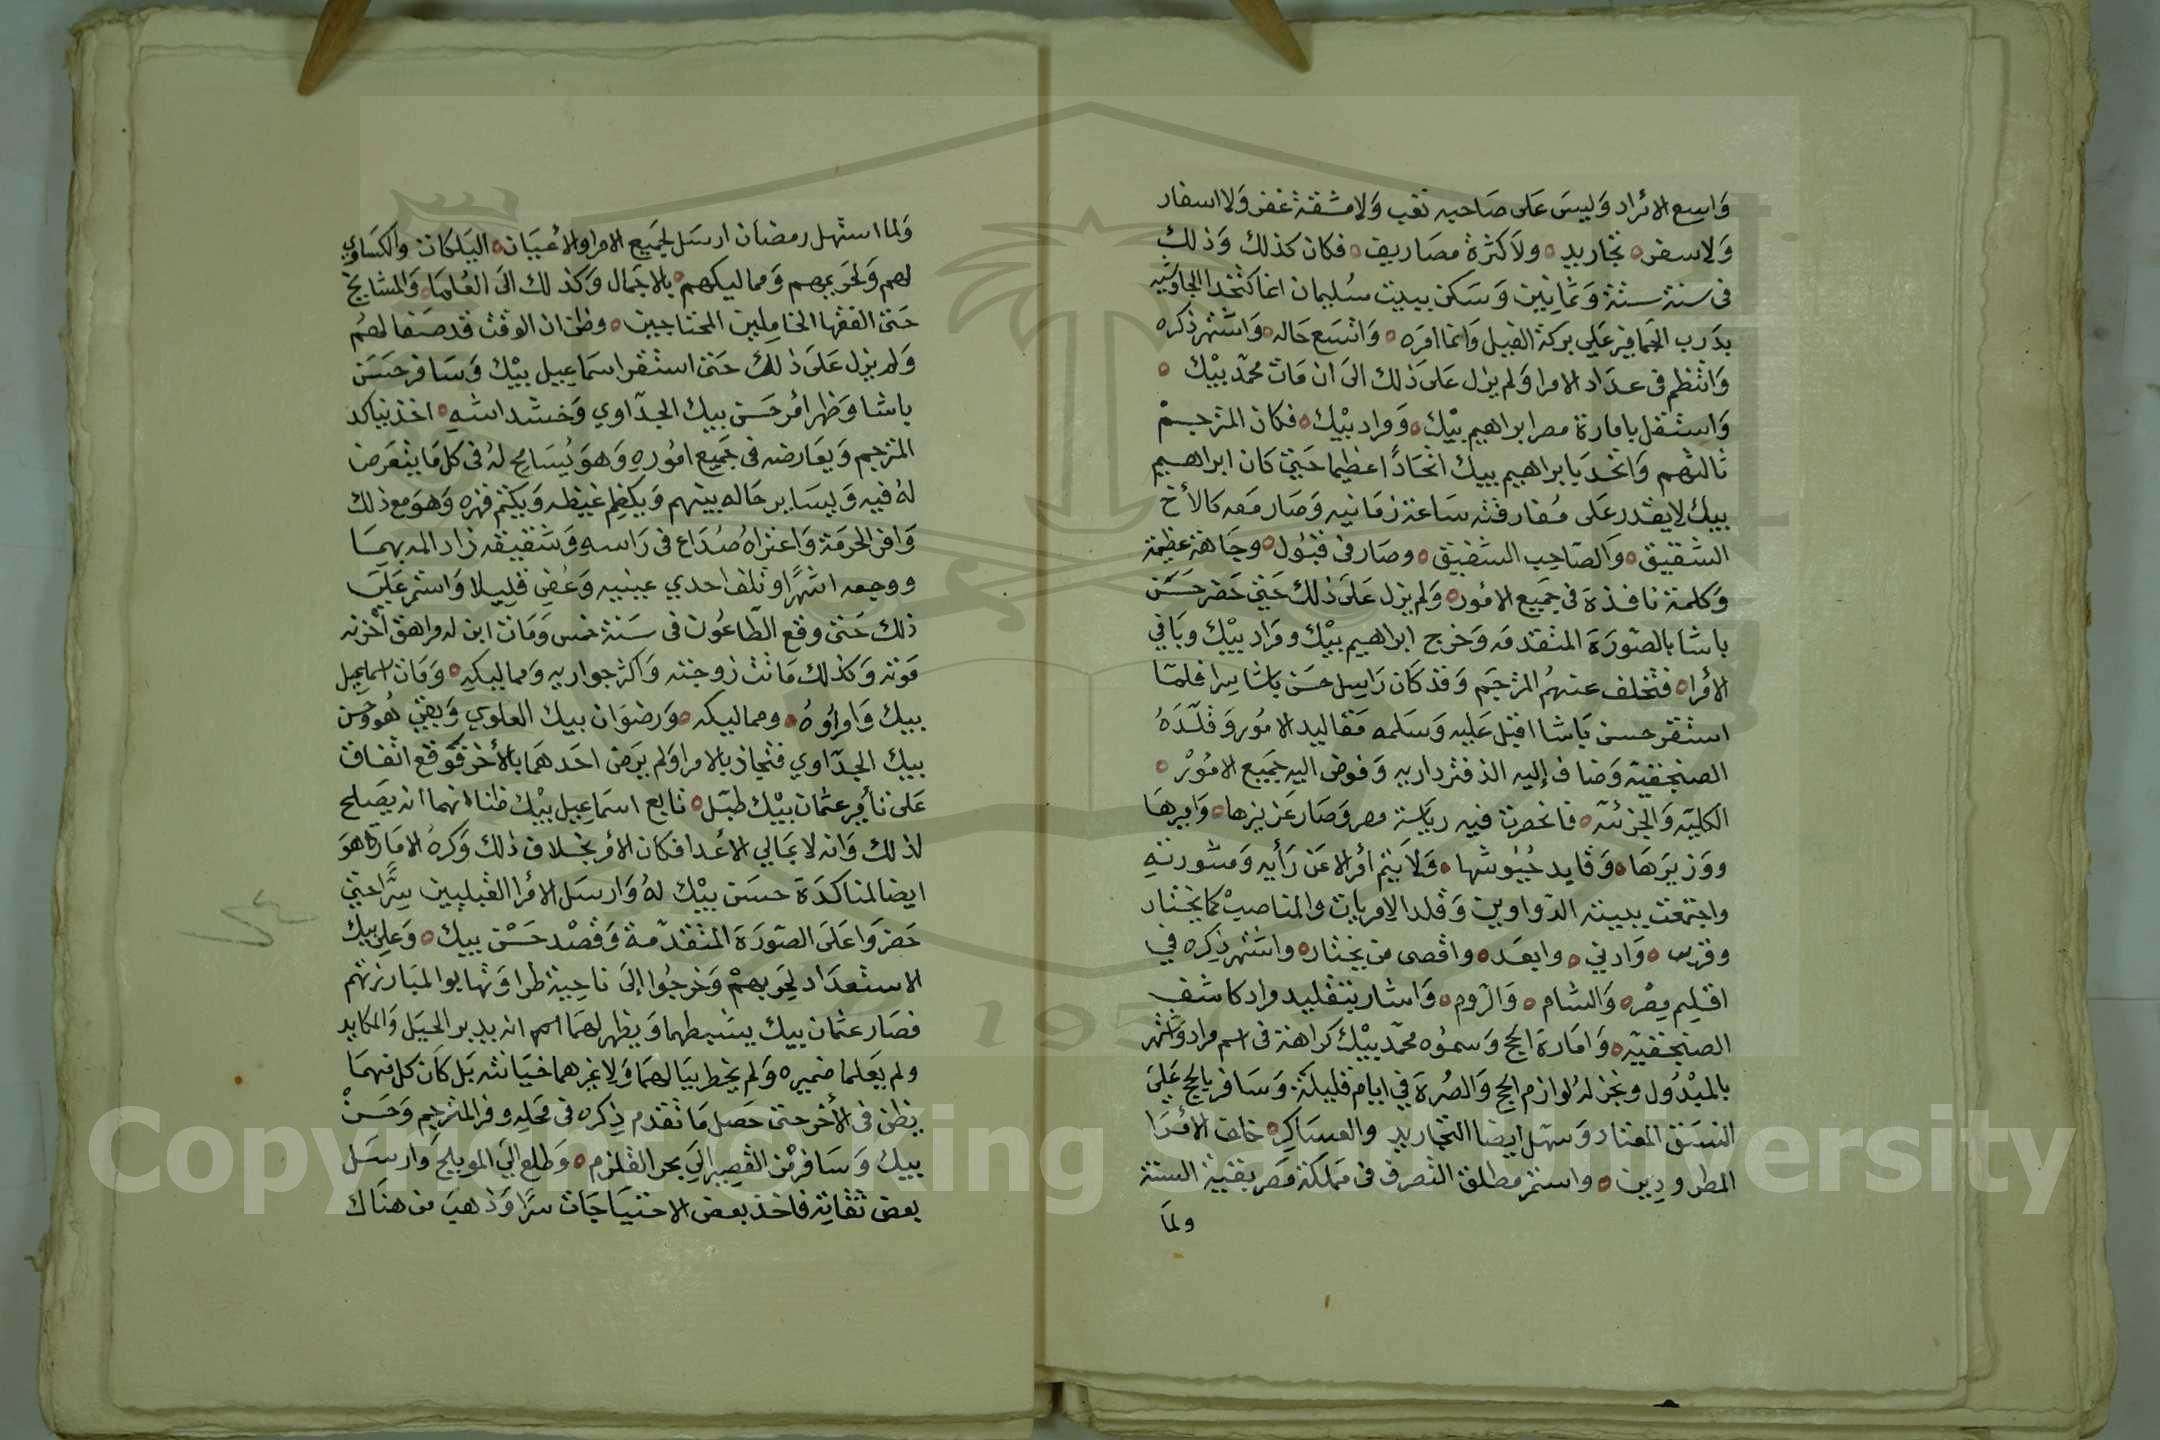 وَاسِع الايراد وَليسَ عَلى صَاحبه تعب وَلا مشقة غفر وَلا اسفار
وَلا سفر ه تجاريد ه ولَا كثرة مصَاريف ه فكان كذلك وَذلك
في سنة ستة وَثمانين وَسَكن ببيت سُليمان اغا كتخدا الجاويشيه
بدَرب الجمَاميز عَلي بركة الفيل وَانما امرَه ه وَاتسَع حَاله ه وَاشتهر ذكره
وَانتظم في عدَاد الامرا وَلم يزل عَلى ذَلك الىَ ان مَات محمّد بيْك ه
وَاستقل بامارة مصر ابراهيم بيْك ه وَمراد بيْك ه فكان المترجم
ثالثهم وَاتحد يا براهيم بيك اتحَادًا عظيما حَتيَ كان ابراهيم
بيك لا يقدر عَلى مُفارقته سَاعة زمَانيه وَصَار مَعه كالأخ
الشقيق ه وَالصّاحِب الشفيق ه وصَار في قبُول ه وجَاهة عظيمة
وَكلمة نافذة في جَميع الامُور ه وَلم يزل عَلىَ ذلك حَتيَ حَضر حَسَن
باشا بالصّورَة المتقدمه وَخرج ابراهيم بيْك ومرَاد بيْك وبَاقي
الأمرا ه فتخلف عنهُم المترجَم وَقد كانَ رَاسِل حسَن باشا سِرا فلمّا
استقر حسن بَاشا اقبل عَليه وَسَلمه مَقاليد الامُور وَقلّدَهُ
الصنجقيّه وَضاف إليه الدفترداريه وَفوض اليه جَميع الامُوْر ه
الكليّه وَالجزئيّه ه فانحصرت فيه ريَاسة مصر وَصَار عَزيزها ه وَاميرهَا
ووَزيرَهَا ه وَقايد جُيوشها ه وَلَا يتم أمر الا عَن رَأيه وَمشورته
واجتمَعَت ببيته الدّواوين وَقلد الامريات والمناصِبْ كما يختار
وقرّب ه وَادني ه وابعَد ه واقصى من يختار ه واشتهر ذِكره في
اقليم مِصْر ه وَالشام ه وَالرّوم ه وَاشار بتقليد مراد كاشف
الصنجقيّه ه وَامَارة الحج وَسموُه محمّد بيْك كراهة في اسم مراد وَاشتهر
بالمبْدُول ونجز لهُ لوازم الحج وَالصُرة في ايام قليلة وَسَافر بالحج عَليَ
النسَق المعتاد وَسهّل ايضا التجاريد والعسَاكر ه خلف الأمَرَا
المطرودِين ه واستمر مطلق التصرف في مَملكة مَصر بقية السنة
ولمَا
وَلما استهل رمضان ارسَل لجَميع الامرا والأعيَان ه البَلكات والكسَاوي
لهم وَلحَريمهم وَممَاليكهم ه بالاجمال وَكذلك الىَ العُلمَا ه وَالمشايخ
حَتىَ الفقها الخامِلين المحتاجين ه وظن ان الوَقت قد صَفا لهُم
وَلم يزل عَلىَ ذلك حَتىَ استقر اسمَاعيل بيْك وَسَافر حسَن
باشا وَظهر امْر حَسن بيك الجدّاوي وَخشداشيه ه اخذ يناكد
المترجم وَيعَارضه في جَميع امُوره وَهوَ يُسَامح لهُ في كل مَا يتعَرض
لهُ فيه وَيسَاير حَاله بينهم وَيكظِم غيظه وَيكتم قهره وَهوَ مع ذلك
وَافر الحرمَة وَاعترَاهُ صُدَاع في رَاسه وَشقيقه زاد المه بهمَا
ووجعه اشهرًا وتلف احدي عينيه وَعُفي قليلا وَاستمر عَليَ
ذلك حَتىَ وقع الطّاعُون في سَنة خمس وَمَات ابن له مراهق أحزنه
مَوته وَكذلك مَاتت زوجته وَاكثر جواريه وَممَاليكه ه وَمَات اسماعيل
بيك وَامرَاوهُ ه وممَاليكه ه وَرضوَان بيك العلوي وَبقي هُو وحسَن
بيك الجدّاوي فتجاذبا الامرا وَلم يرَض احَدهمَا بالأخر فوَقع اتفاق
عَلى تأمير عثمان بيْك طبَل ه تابع اسمَاعيل بيْك ظنا منهما انه يَصلح
لذلك وَانه لا يمَالي الأعْدا فكان الأمر بخلاف ذلك وَكرهُ الامَارة هوَ
ايضا لمناكدَة حسَن بيْك لهُ وَارسَل الأمرا القبليين سِرًّا حتي
حَضروَا عَلىَ الصّورَة المتقدّمة وَقصْد حَسْن بيك ه وَعلي بيك
الاستعدَاد لحَربهمْ وَخرجُوا إلىَ ناحِية طرا وَتهَايوا لمبَارزتهم
فصَار عثمان بيك يبثبطهما وَيظهر لهمَا انه يدبر الحيَل وَالمكايد
ولم يَعلما ضميره وَلم يخطر ببَالهمَا وَلا غيرهما خيَانته بَل كانَ كل منهمَا
يظن في الأخر حتىَ حَصل مَا تقدم ذِكره في مَحَله وفر المترجم وَحَسنْ
بيك وَسَافر مْن القصِير اليَ بحر القلزم ه وَطلع اليَ المويلح وَارسَل
بعض ثقاته فاخذ بعض الاحتيَاجَات سرًّا وَذهبَ من هنَاك